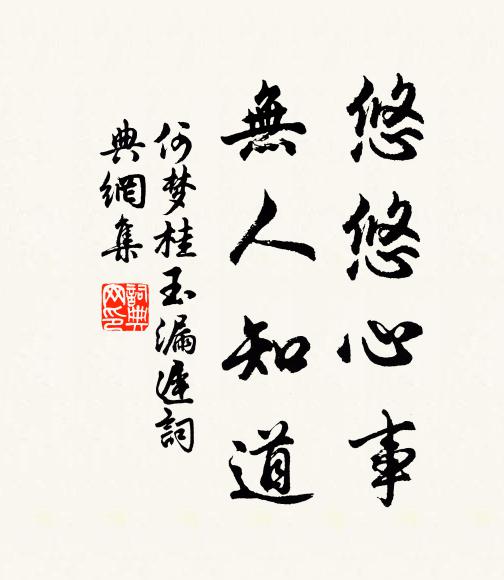 悠悠心事
無人知道
何梦桂玉漏遲詞
典網集
詞典網印